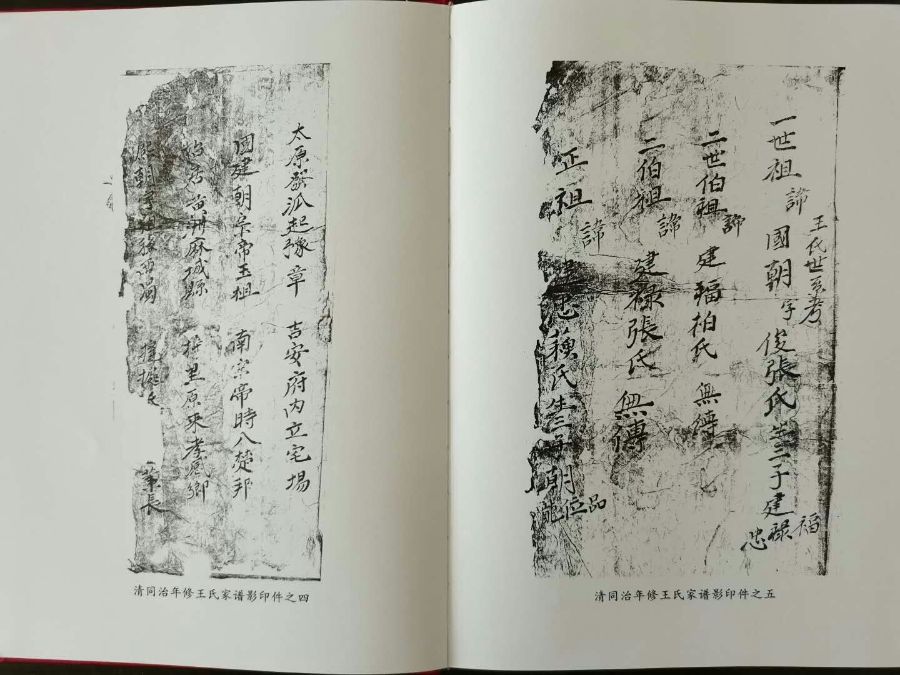 太原發派起豫章 吉安府内立宅場
國建朝 帝王祖 南宗帝時入楚邦
黄州麻城縣 里原来孝感鄉
朝 西蜀 葉長
清同治年修王氏家谱影印件之四
王氏世系考
一世祖 諱 國朝 字 俊 張氏 生三子 建 福 禄 忠
二世伯祖 諱 建福 柏氏 無傳
二伯祖 諱 建禄 張氏 無傳
正祖 諱 建忠 蘓氏 生三子 朝 品 位 龍
清同治年修王氏家谱影印件之五